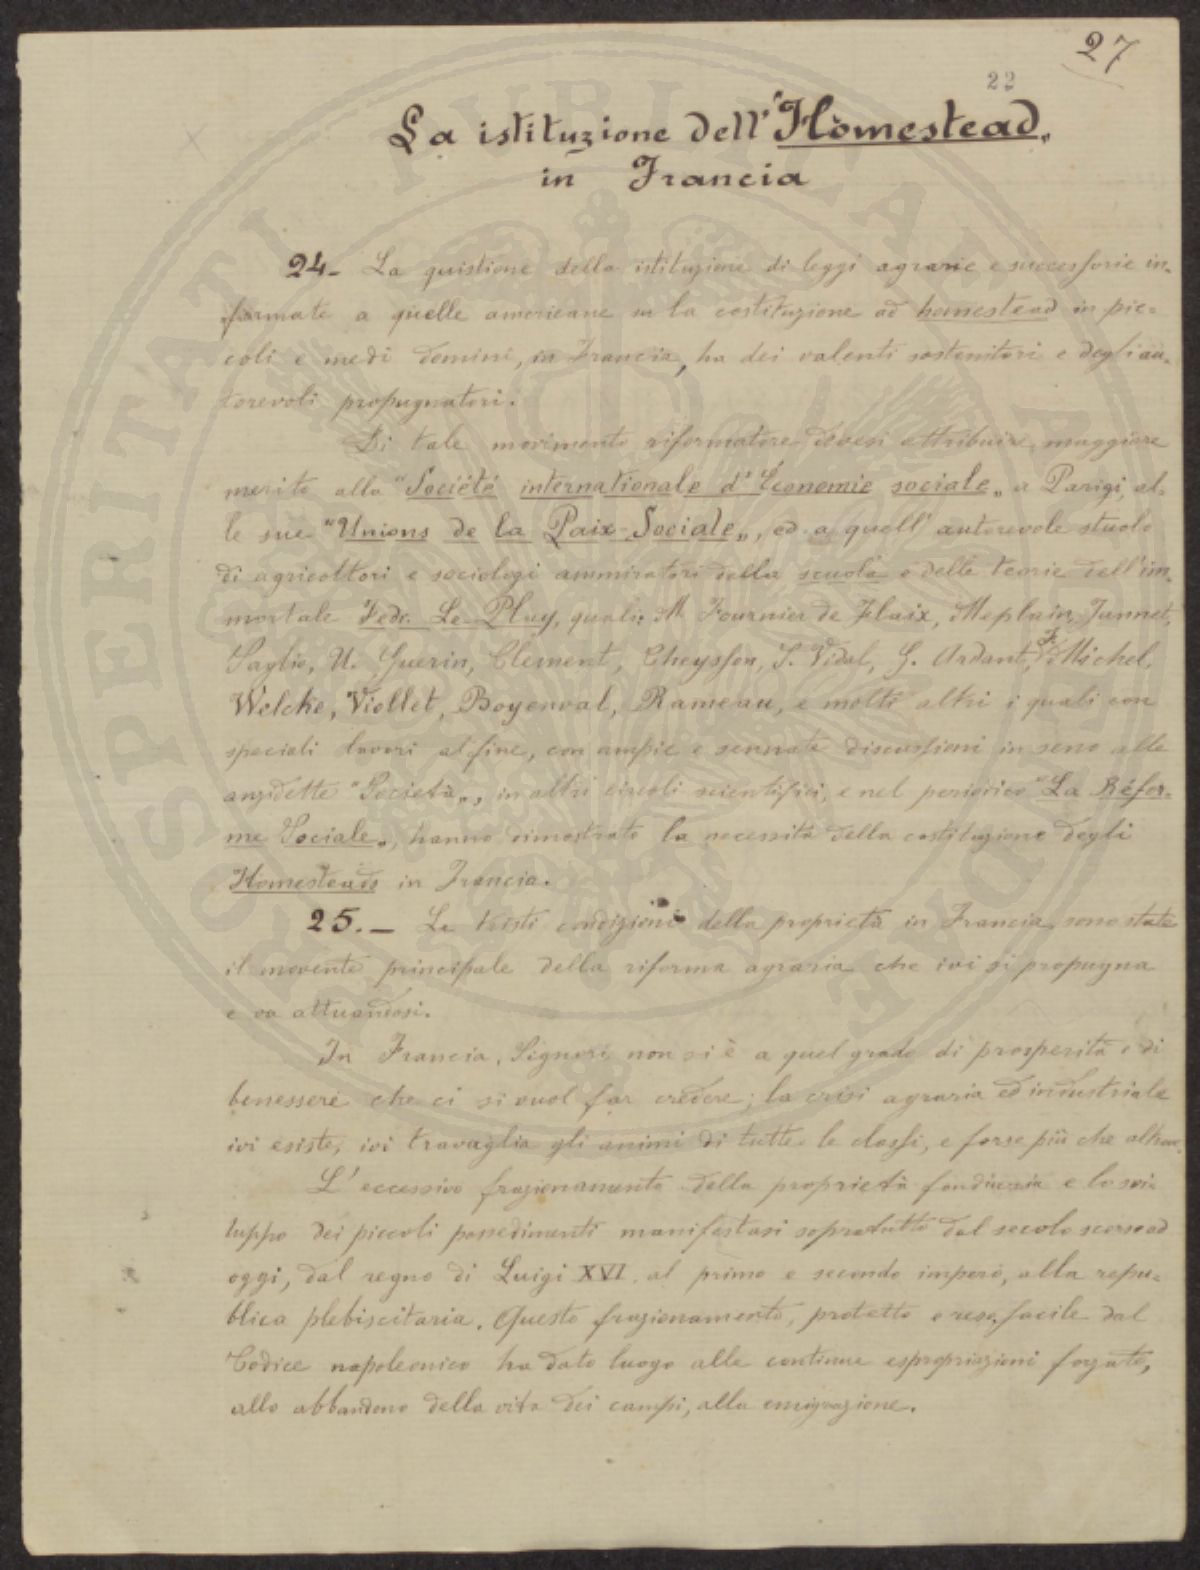 27
22
La istituzione dell'"Hòmestead„
in Francia
24- La quistione della istituzione di leggi agrarie e successorie in-
formate a quelle americane su la costituzione ad homestead in pic-
coli e medî dominî, in Francia, ha dei valenti sostenitori e degli au-
torevoli propugnatori.
Di tale movimento riformatore devesi attribuire maggiore
merito alla "Société internationale d'Économie sociale„ a Parigi, al-
le sue "Unions de la Paix-Sociale„, ed a quell' autorevole stuolo
di agricoltori e sociologi ammiratori della scuola e delle teorie dell'im-
mortale Fedr. Le-Play, quali: M Fournier de Flaix, Meplain, Jannet,
Saglio, U. Guerin, Clement, Cheysson, S. Vidal, G. Ardant, F. Michel,
Welche, Viollet, Boyenval, Rameau, e molti altri i quali con
speciali lavori al fine, con ampie e sennate discussioni in seno alle
anzidette "Società„, in altri circoli scientifici, e nel periodico "La Réfor-
me Sociale„, hanno dimostrato la necessità della costituzione degli
Homesteads in Francia.
25.- Le tristi condizioni della proprietà in Francia sono state
il movente principale della riforma agraria che ivi si propugna
e va attuandosi.
In Francia, Signori, non si è a quel grado di prosperità e di
benessere che ci si vuol far credere; la crisi agraria ed industriale
ivi esiste, ivi travaglia gli animi di tutte le classi, e forse più che altrove.
L'eccessivo frazionamento della proprietà fondiaria e lo svi-
luppo dei piccoli possedimenti manifestasi sopratutto dal secolo scorso ad
oggi, dal regno di Luigi XVI, al primo e secondo impero, alla repu-
blica plebiscitaria. Questo frazionamento, protetto e reso facile dal
Codice napoleonico ha dato luogo alle continue espropriazioni forzate,
allo abbandono della vita dei campi, alla emigrazione.